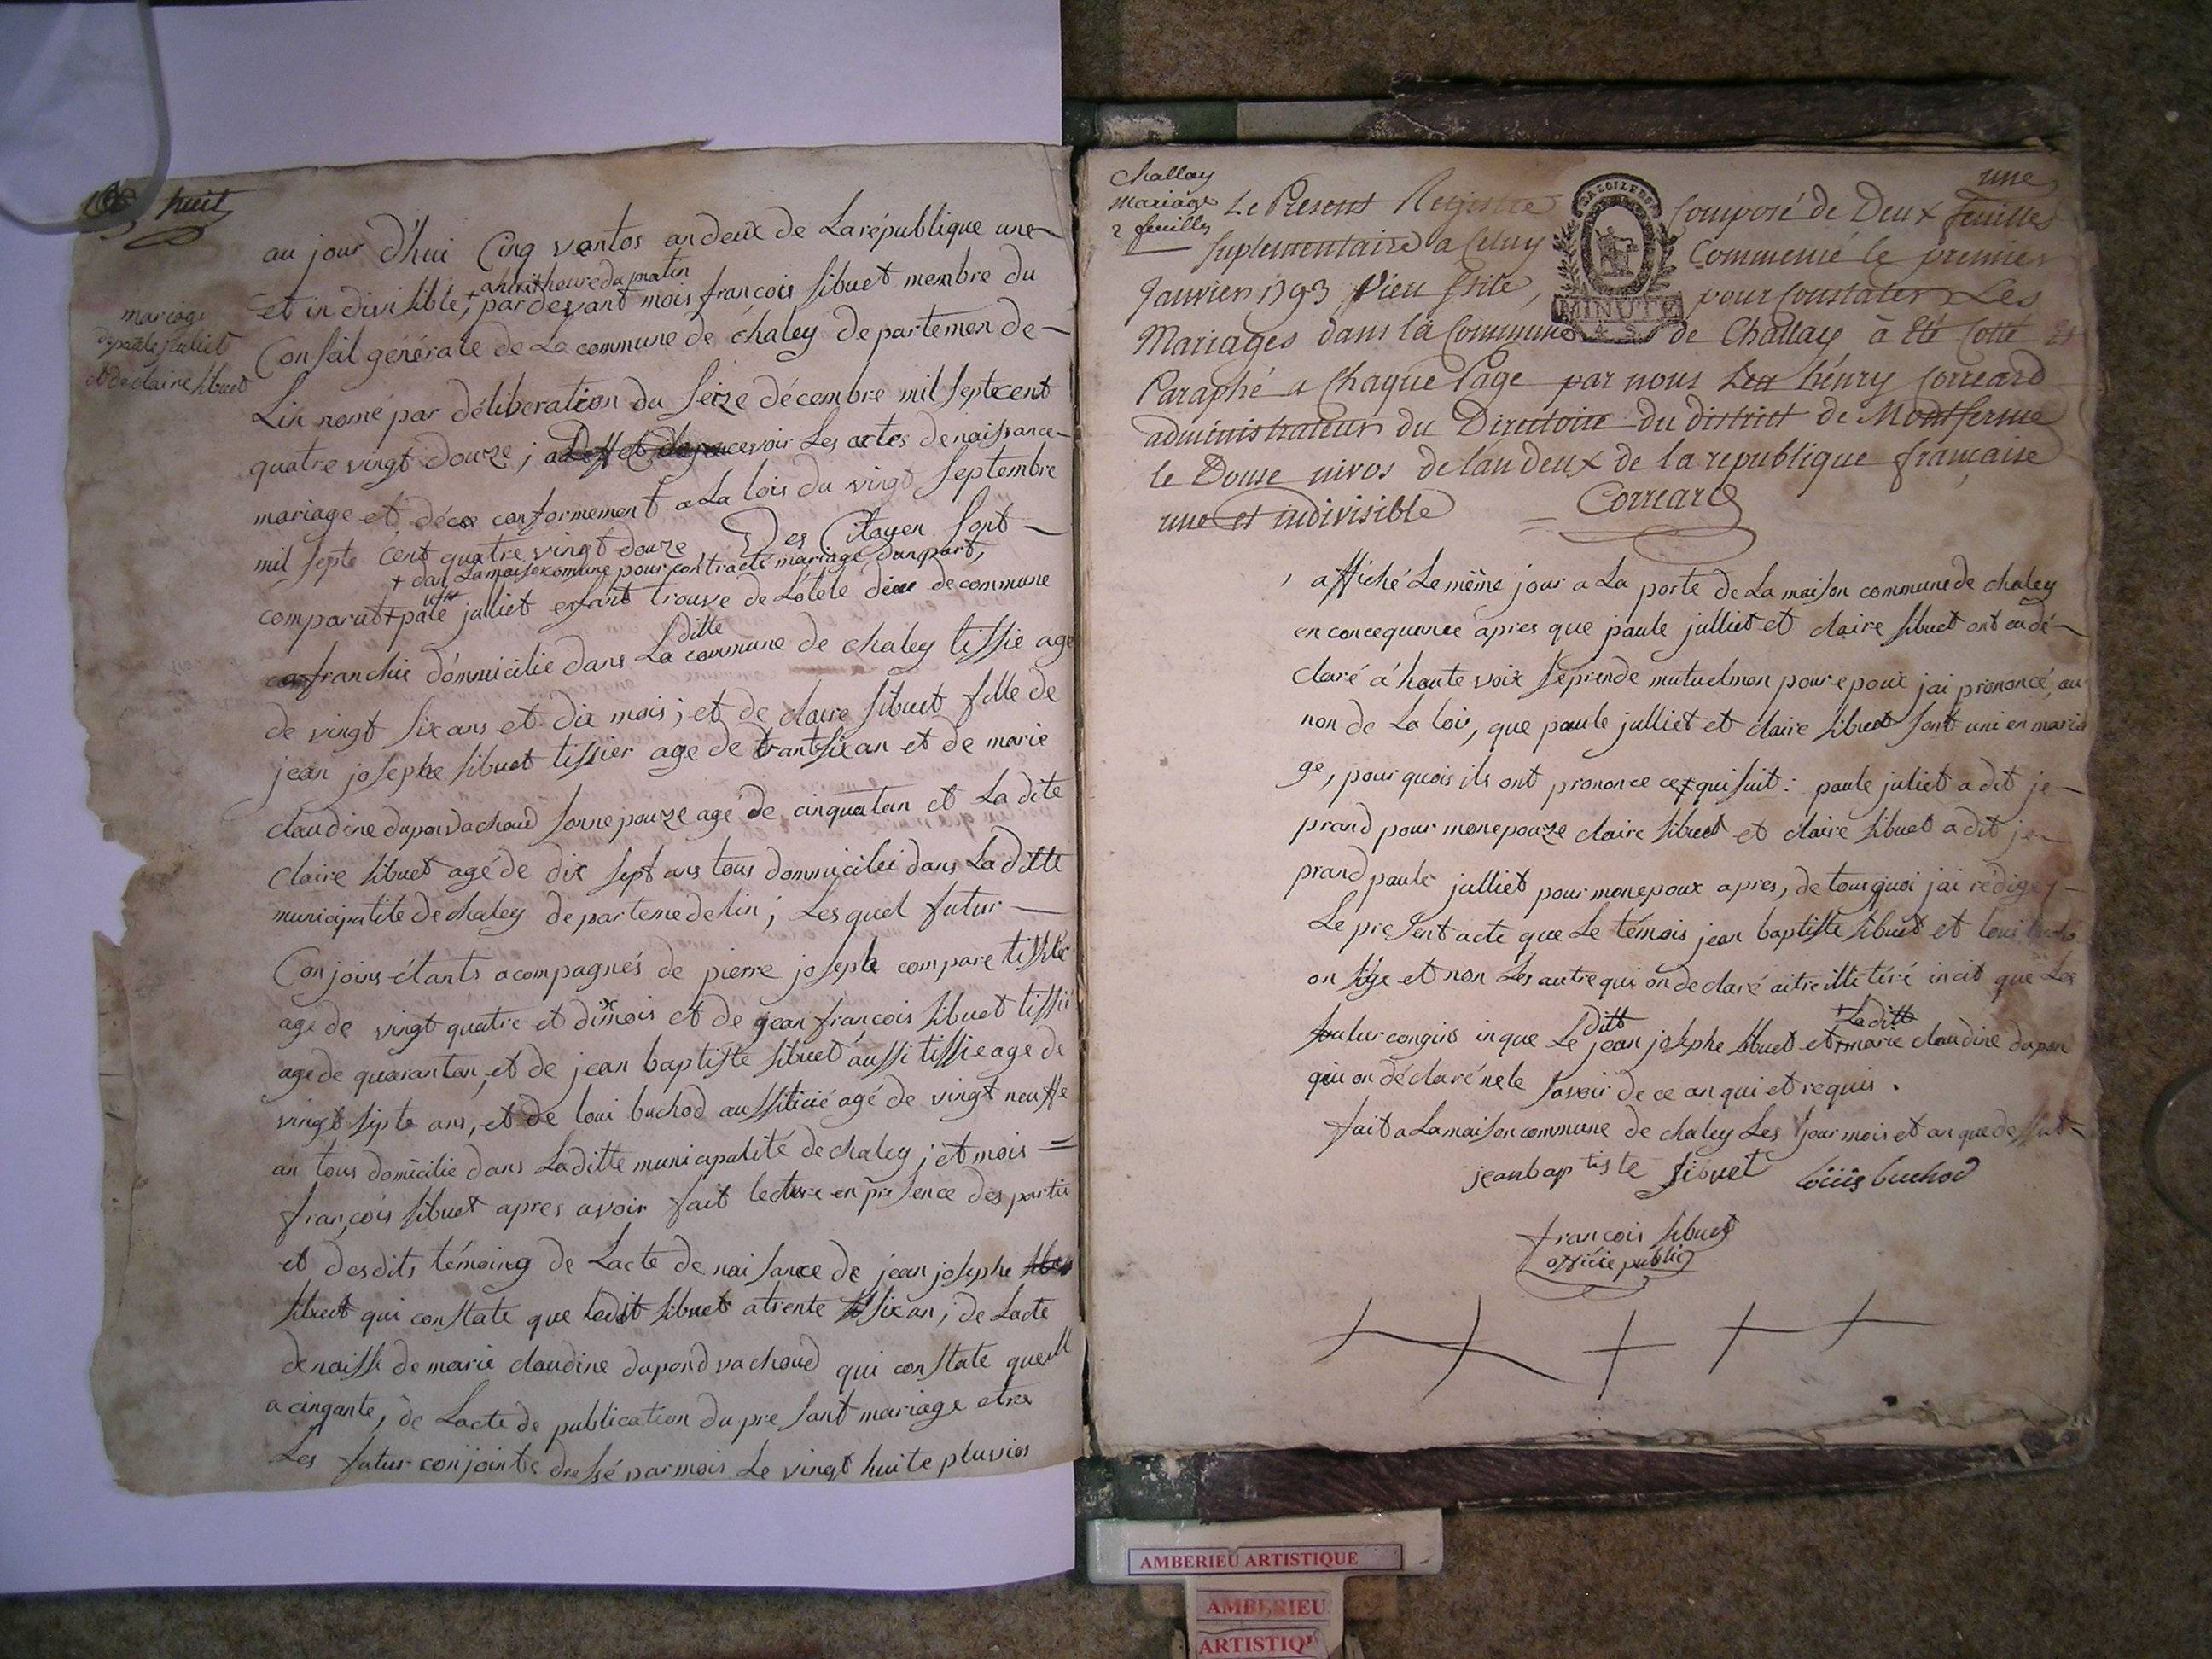 huit
mariage
de paule julliet
et de claire sibuet
au jour d'hui Cinq ventos an deux de La république une
et in divisible, + a huit heure du matin par devant mois françois sibuet membre du
Conseil générale de La commune de chaley departemen de
Lin nomé par déliberation du seize décembre mil septecent
quatre vingt douze ; a L'effet de recevoir Les actes de naissance
mariage et déce conformement a La lois du vingt septembre
mil septe cent quatre vingt douze Des Citoyen sont
+ dans La maison comune pour contracté mariage dunpart,
comparut + pale julliet enfant trouve de L'otele dieu de commune
franchie d'ommicilie dans La ditte commune de chaley tissie age
de vingt six ans et dix mois ; et de claire sibuet fille de
jean josephe sibuet tissier age de trant six an et de marie
claudine dupon vachoud sonne pouze agé de cinquatan et La dite
claire sibuet agé de dix sept ans tous dommicilei dans La ditte
municipatite de chaley departeme de lin ; Les quel futur
Conjoins étants acompagnés de pierre josephe compare tissie
age de vingt quatre et dix mois et de jean françois sibuet tissie
age de quarantan, et de jean baptiste sibuet aussi tissie age de
vingt septe ans, et de loui buchod aussi ticié agé de vingt neuffe
an tous domicilie dans Laditte municipalité de chaley ; et mois =
françois sibuet apres avoir fait lecture en presence des partie
et desdits témoing de Lacte de naisance de jean josephe
sibuet qui constate que ledit sibuet a trente six an ; de Lacte
de naisse de marie claudine dupond vachoud qui constate quell
a cinqante, de Lacte de publication du pre sant mariage etre
Les futur conjoints dressé par mois Le vingt huite pluvios
Challay
mariage
2 feuilles
une
Le Present Registre Composé de Deux feuilles
suplementaire a Celuy Commencé le premier
Janvier 1793 Vieu stile, pour Constater Les
MINUTE
4. S.
Mariages dans la Commune de Challay à été Cotté Et
Paraphé a Chaque Page par nous hénry Correard
administrateur du Directoire du district de Montferme
le Douse nivos de lan deux de la republique française
une et indivisible Correard
affiché Le même jour a La porte de La maison commune de chaley
en concequence apres que paule julliet et claire sibuet ont eu dé-
claré a haute voix se prende mutuelmon pour epoux jai prononcé, au
non de La lois, que paule julliet et claire sibuet sont uni en maria
ge, pour quois ils ont prononce ce qui suit : paule juliet a dit je
prand pour mone pouze claire sibuet et claire sibuet a dit je
prand paule julliet pour mon epoux apres, de tousquoi jai rédigey
Le presant acte que Le témois jean baptiste sibuet et loui
on sige et non Les autre qui on de claré aitre illitéré incit que Les
futur congins inque Le ditt jean josephe sibuet et La ditt marie claudine dupon
qui on déclaré nele savoir de ce an qui et requis .
fait a La maison commune de chaley Les jour mois et an que dessut
jean baptiste sibuet Loüis buchod
françois sibuet
officie public
AMBERIEU ARTISTIQUE
AMBERIEU
ARTISTIQU